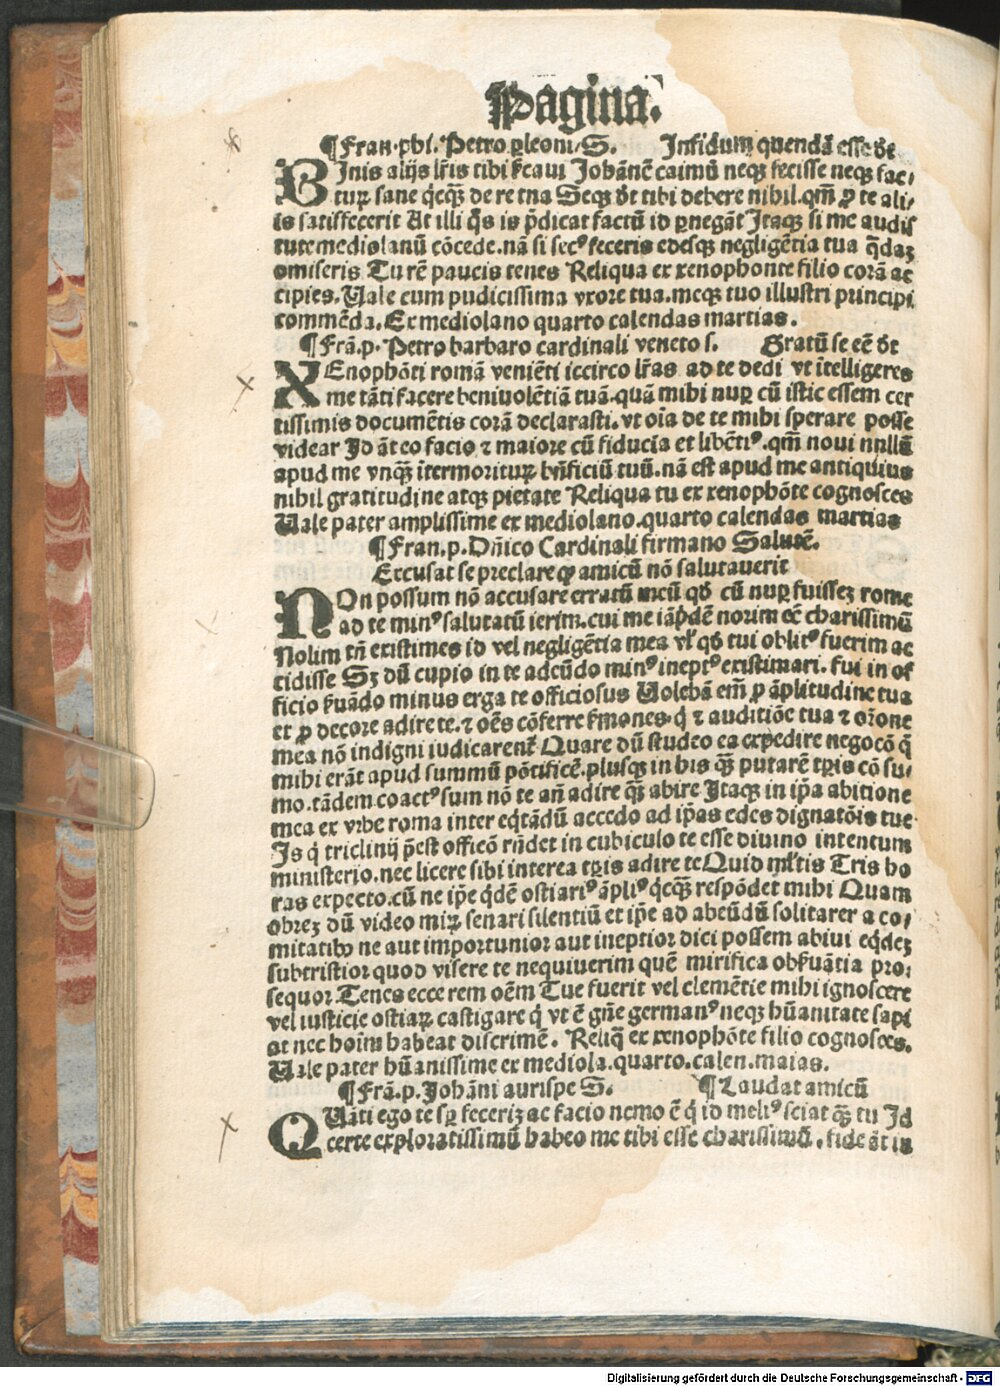 Pagina.
¶Fran.phi. Petro ꝑleoni. S. Infidum quendā esse dt̄
BInis alijs lr̄is tibi ẜcaui Johānē caimū neqꝫ fecisse neqꝫ fac/
turꝝ sane q̇cqꝫ de re tua Seqꝫ dt̄ tibi debere nihil.qm̄ ꝓ te ali/
is satisfecerit At illi q̄s is p̄dicat factū id ꝑnegāt Jtaqꝫ si me audis
tute mediolanū cōcede.nā si secꝰ feceris edesqꝫ negligētia tua q̄daꝫ
omiseris Tu rē paucis tenes Reliqua ex xenophonte filio corā ac
cipies.Uale cum pudicissima vxore tua.meqꝫ tuo illustri principi
commēda.Ex mediolano quarto calendas martias.
¶Frā.p. Petro barbaro cardinali veneto s. Gratū se eē dt̄
XEnophōti romā veniēti iccirco lr̄as ad te dedi vt ītelligeres
me tāti facere beniuolētiā tuā.quā mihi nuꝑ cū istic essem cer
tissimis documētis corā declarasti.vt oīa de te mihi sperare posse
videar Jd āt eo facio ⁊ maiore cū fiducia et libētiꝰ.qm̄ noui nullū
apud me vnqꝫ ītermoriturꝝ bn̄ficiū tuū.nā est apud me antiquius
nihil gratitudine atqꝫ pietate Reliqua tu ex xenophōte cognosces
Uale pater amplissime ex mediolano.quarto calendas martias
¶Fran.p.Dn̄ico Cardinali firmano Salutē.
Excusat se preclare qꝫ amicū nō salutauerit
NOn possum nō accusare erratū meū qd̓ cū nuꝑ fuisseꝫ rome
ad te minꝰ salutatū ierim.cui me iāp̄dē norim eē charissimū
Nolim tn̄ existimes id vel negligētia mea vl̓ qd̓ tui oblitꝰ fuerim ac
cidisse Sꝫ dū cupio in te adeūdo minꝰ ineptꝰ existimari. fui in of
ficio ẜuādo minus erga te officiosus Uolebā em̄ ꝓ āplitudine tua
et ꝓ decore adire te.⁊ oēs cōferre ẜmones.q̇ ⁊ auditiōe tua ⁊ or̄one
mea nō indigni iudicarent̄ Quare dū studeo ea expedire negocō q̄
mihi erāt apud summū pōtificē.plusqꝫ in his qꝫ putarē tꝑis cō su/
mo.tādem coactꝰ sum nō te an̄ adire qꝫ abire Jtaqꝫ in ip̄a abitione
mea ex vrbe roma inter eq̇tādū accedo ad ip̄as edes dignatōis tue
Js q̇ triclinij p̄est officō rn̄det in cubiculo te esse diuino intentum
ministerio.nec licere sibi interea tꝑis adire te Quid ml̓tis Tris ho
ras expecto.cū ne ip̄e q̇dē ostiariꝰ āpliꝰ q̇cqꝫ respōdet mihi Quam
obreꝫ dū video mirꝝ senari silentiū et ip̄e ad abeūdū solitarer a co/
mitatibꝰ ne aut importunior aut ineptior dici possem abiui eq̇deꝫ
subtristior quod visere te nequiuerim quē mirifica obẜuātia pro:
sequor.Tenes ecce rem oēm Tue fuerit vel clemētie mihi ignoscere
vel iusticie ostiarꝝ castigare q̇ vt ē gn̄e germanꝰ neqꝫ hūanitate sapi
at nec hoīm habeat discrimē. Reliq̄ ex xenophōte filio cognosces.
Uale pater hūanissime ex mediola.quarto.calen.maias.
¶Frā.p.Johāni aurispe S. ¶Laudat amicū
QUāti ego te sꝑ feceriꝫ ac facio nemo ē q̇ id meliꝰ sciat qꝫ tu Jd
certe exploratissimū habeo me tibi esse charissimū.fide āt in
Digitalisierung gefördert durch die Deutsche Forschungsgemeinschaft - DFG